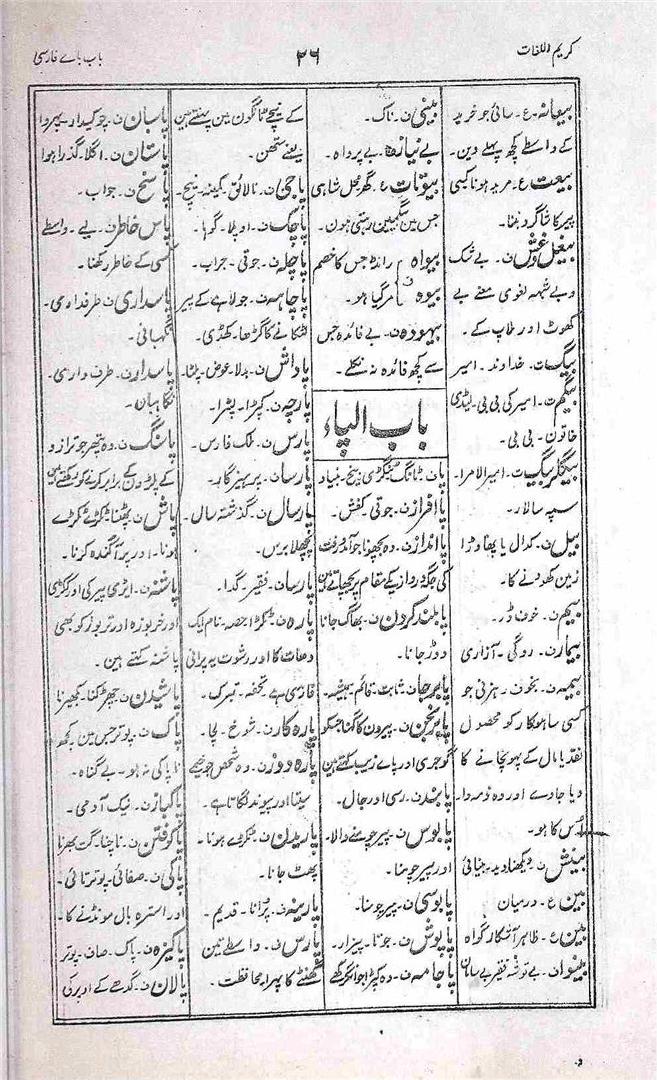 کریم اللغات
۳۶
باب باے فارسی
بیعانہ۔ ع۔ سائی جو خرید
کے واسطے کچھ پہلے دین۔
بیعت ع۔ مرید ہونا کسی
پیر کا شاگرد بننا۔
بیغل وغش ن۔ بے شک
وبے شبہہ لغوی معنے بے
کھوٹ اور ملاپ کے۔
بیگ ت۔ خداوند۔ امیر
بیگم ت۔ امیر کی بی بی۔ لیڈی
خاتون۔ بی بی۔
بیگلر بیگ ت۔ امیر الامرا۔
سپہ سالار۔
بیل ن۔ کدال یا پھاوڑا
زمین کھودنے کا۔
بیم ن۔ خوف ڈر۔
بیمار ن۔ روگی۔ آزاری
بیمہ ن۔ بخوف رہزنی جو
کسی ساہوکار کو محصول
نقد یا مال کے پہونچانے کا
دیا جاوے اور وہ ذمہ دار
اُس کا ہو۔
بینش ن۔ دیکھنا دید۔ بینائی
بین ع۔ درمیان
بین ع۔ ظاہر آشکار گواہ
بینوا ن۔ بے توشہ فقیر بے سامان
بینی ن۔ ناک۔
بے نیاز ن۔ بے پرواہ۔
بیوتات ع۔ گھر محل شاہی
جس مین بیگمین رہتی ہون۔
بیواہ رانڈ جس کا خصم
بیوہ ن مرگیا ہو۔
بیہودہ ن۔ بے فائدہ جس
سے کچھ فائدہ نہ نکلے۔
باب الپاء
پا ن۔ ٹانگ بیخ۔ بنیاد
پا افزار ن۔ جوتی۔ کفش۔
پا انداز ن۔ وہ بچھونا جو آمدورفت
کی جگہ دروازے کے مقام پر بچھاتے ہین
پا بلند کردن ن۔ بھاگ جانا
دوڑ جانا۔
پا برجا ن۔ ثابت۔ قائم۔ ہمیشہ۔
پا برنجن ن۔ پیرون کا گہنا جسکو
گوجری اور پاے زیب کہتے ہین
پابند ن۔ رسی اور جال۔
پابوس ن۔ پیر چومنے والا۔
اور پیر چومنا۔
پابوسی ن۔ پیر چومنا۔
پاپوش ن۔ جوتا۔ پیزار۔
پاجامہ ن۔ وہ کپڑا جو انگرکھے
کے نیچے ٹانگون مین پہنتے ہین
یعنے ستھن۔
پاجی ن۔ نالائق۔ کمینہ۔ نیچ۔
پاچک ن۔ اوپلا۔ گوہا۔
پاچلہ ن۔ جوتی۔ جراب۔
پاچاہہ ن۔ جولاہے کے پیر
لٹکانے کا گڑھا۔ کھڈی۔
پاداش ن۔ بدلا۔ عوض۔ پلٹا۔
پارچہ ن۔ کپڑا۔ پشرا۔
پارس ن۔ ملک فارس۔
پارسا ن۔ پرہیزگار۔
پارسال ن۔ گذشتہ سال۔
پچھلا برس۔
پارسا ن۔ فقیر۔ گدا۔
پارہ ن۔ ٹکڑا حصہ۔ نام ایک
دھات کا اور رشوت یہ پرانی
فارسی ہے۔ تحفہ۔ تبرک۔
پارہ کار ن۔ شوخ۔ لچا۔
پارہ دوز ن۔ وہ شخص جو خیمے
سیتا اور پیوند لگاتا ہے۔
پاریدن ن۔ ٹکڑے ہونا۔
پھٹ جانا۔
پارینہ ن۔ پُرانا۔ قدیم۔
پارس ن۔ واسطے تین
گھنٹے کا پہرا۔ محافظت۔
پاسبان ن۔ چوکیدار۔ پہروا
پاستان ن۔ اگلا۔ گذرا ہوا
پاسخ ن۔ جواب۔
پاس خاطر ن۔ لیے۔ واسطے
کسی کے خاطر رکھنا۔
پاسداری ن۔ طرفداری۔
نگہبانی۔
پاسدار ن۔ طرف داری۔
نگاہبان۔
پاسنگ ن۔ وہ پتھر جو ترازو
کے پلڑون کے برابر کرنے کو رکھتے ہین
پاش ن۔ پھٹنا۔ ٹکڑے ٹکڑے
ہونا۔ اور پراگندہ کرنا۔
پاشنہ ن۔ ایڑی پیر کی اور ککڑی
اور خربوزہ اور تربوز کو بھی
پاشنہ کہتے ہین۔
پاشیدن ن۔ چھڑکنا۔ بکھیرنا
پاک ن۔ پوتر جس مین کچھ
ناپاکی نہ ہو۔ بے گناہ۔
پاکباز ن۔ نیک آدمی۔
پاکوفتن ن۔ ناچنا۔ گت بھرنا
پاکی ن۔ صفائی۔ پوترتائی۔
اور استرہ بال مونڈنے کا۔
پاکیزہ ن۔ پاک۔ صاف۔ پوتر
پالان ن۔ گدھے کے اوپر کی